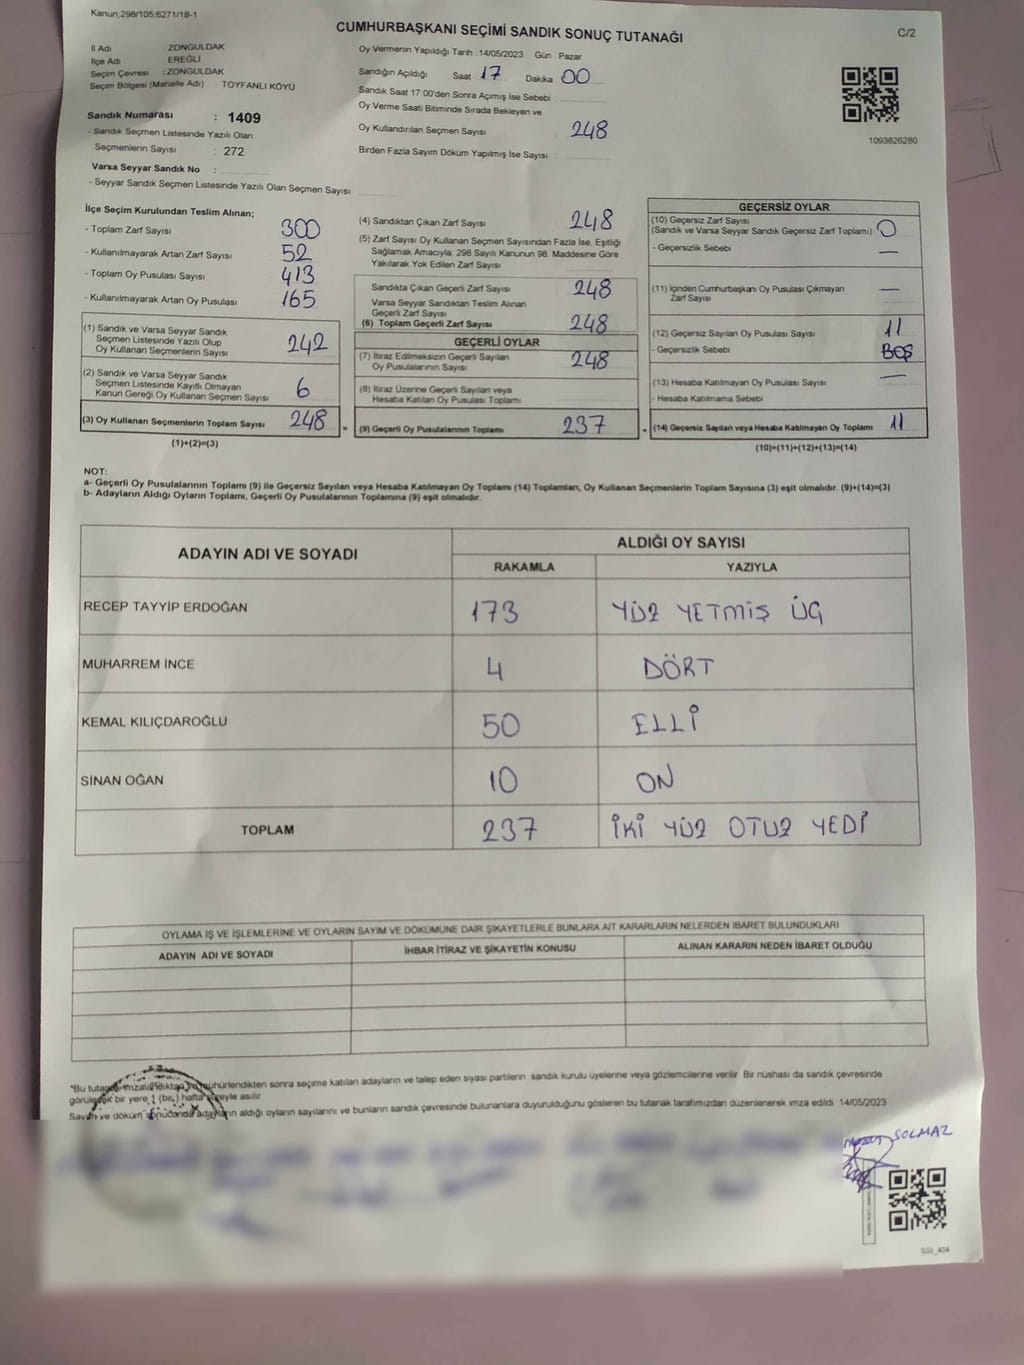 Kanun;298/105;6271/18-1
CUMHURBAŞKANI SEÇİMİ SANDIK SONUÇ TUTANAĞI
C/2
İl Adı ZONGULDAK
İlçe Adı EREĞLİ
Seçim Çevresi : ZONGULDAK
Seçim Bölgesi (Mahalle Adı) : TOYFANLI KÖYÜ
Sandık Numarası : 1409
- Sandık Seçmen Listesinde Yazılı Olan
Seçmenlerin Sayısı : 272
Varsa Seyyar Sandık No :
- Seyyar Sandık Seçmen Listesinde Yazılı Olan Seçmen Sayısı
Oy Vermenin Yapıldığı Tarih : 14/05/2023 Gün Pazar
Sandığın Açıldığı Saat 17 Dakika 00
Sandık Saat 17:00'den Sonra Açımış İse Sebebi
Oy Verme Saati Bitiminde Sırada Bekleyen ve
Oy Kullandırılan Seçmen Sayısı 248
Birden Fazla Sayım Döküm Yapılmış İse Sayısı
1093826280
İlçe Seçim Kurulundan Teslim Alınan;
- Toplam Zarf Sayısı 300
- Kullanılmayarak Artan Zarf Sayısı 52
- Toplam Oy Pusulası Sayısı 413
- Kullanılmayarak Artan Oy Pusulası 165
(1) Sandık ve Varsa Seyyar Sandık
Seçmen Listesinde Yazılı Olup
Oy Kullanan Seçmenlerin Sayısı 242
(2) Sandık ve Varsa Seyyar Sandık
Seçmen Listesinde Kayıtlı Olmayan
Kanun Gereği Oy Kullanan Seçmen Sayısı 6
(3) Oy Kullanan Seçmenlerin Toplam Sayısı 248 =
(1)+(2)=(3)
(4) Sandıktan Çıkan Zarf Sayısı 248
(5) Zarf Sayısı Oy Kullanan Seçmen Sayısından Fazla İse, Eşitliği
Sağlamak Amacıyla, 298 Sayılı Kanunun 98. Maddesine Göre
Yakılarak Yok Edilen Zarf Sayısı
Sandıkta Çıkan Geçerli Zarf Sayısı 248
Varsa Seyyar Sandıktan Teslim Alınan
Geçerli Zarf Sayısı
(6) Toplam Geçerli Zarf Sayısı 248
GEÇERLİ OYLAR
(7) İtiraz Edilmeksizin Geçerli Sayılan
Oy Pusulalarının Sayısı 248
(8) İtiraz Üzerine Geçerli Sayılan veya
Hesaba Katılan Oy Pusulası Toplamı
(9) Geçerli Oy Pusulalarının Toplamı 237 +
GEÇERSİZ OYLAR
(10) Geçersiz Zarf Sayısı
(Sandık ve Varsa Seyyar Sandık Geçersiz Zarf Toplamı) 0
- Geçersizlik Sebebi —
(11) İçinden Cumhurbaşkanı Oy Pusulası Çıkmayan
Zarf Sayısı —
(12) Geçersiz Sayılan Oy Pusulası Sayısı 11
- Geçersizlik Sebebi BOŞ
(13) Hesaba Katılmayan Oy Pusulası Sayısı —
- Hesaba Katılmama Sebebi
(14) Geçersiz Sayılan veya Hesaba Katılmayan Oy Toplamı 11
(10)+(11)+(12)+(13)=(14)
NOT:
a- Geçerli Oy Pusulalarının Toplamı (9) ile Geçersiz Sayılan veya Hesaba Katılmayan Oy Toplamı (14) Toplamları, Oy Kullanan Seçmenlerin Toplam Sayısına (3) eşit olmalıdır. (9)+(14)=(3)
b- Adayların Aldığı Oyların Toplamı, Geçerli Oy Pusulalarının Toplamına (9) eşit olmalıdır.
ADAYIN ADI VE SOYADI
ALDIĞI OY SAYISI
RAKAMLA YAZIYLA
RECEP TAYYİP ERDOĞAN 173 YÜZ YETMİŞ ÜÇ
MUHARREM İNCE 4 DÖRT
KEMAL KILIÇDAROĞLU 50 ELLİ
SİNAN OĞAN 10 ON
TOPLAM 237 İKİ YÜZ OTUZ YEDİ
OYLAMA İŞ VE İŞLEMLERİNE VE OYLARIN SAYIM VE DÖKÜMÜNE DAİR ŞİKAYETLERLE BUNLARA AİT KARARLARIN NELERDEN İBARET BULUNDUKLARI
ADAYIN ADI VE SOYADI İHBAR İTİRAZ VE ŞİKAYETİN KONUSU ALINAN KARARIN NEDEN İBARET OLDUĞU
"Bu tutanak imzalandıktan ve mühürlendikten sonra seçime katılan adayların ve talep eden siyasi partilerin sandık kurulu üyelerine veya gözlemcilerine verilir. Bir nüshası da sandık çevresinde
görülecek bir yere 1 (bir) hafta süreyle asılır.
Sayım ve döküm sonucunda adayların aldığı oyların sayılarını ve bunların sandık çevresinde bulunanlara duyurulduğunu gösteren bu tutanak tarafımızdan düzenlenerek imza edildi. 14/05/2023
SOLMAZ
SSI_404